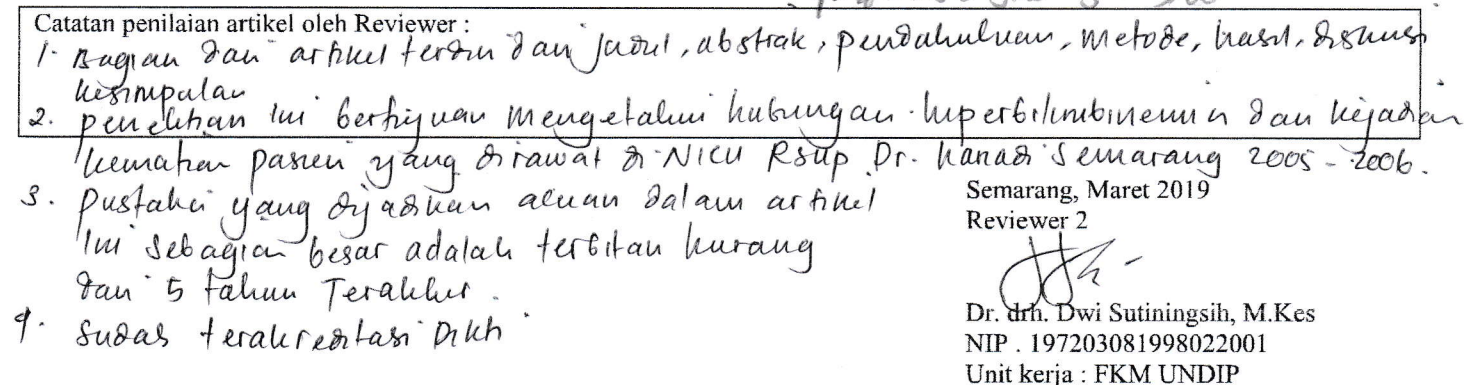 Catatan penilaian artikel oleh Reviewer :
1. Bagian dari artikel terdiri dari judul, abstrak, pendahuluan, metode, hasil, diskusi
kesimpulan
2. penelitian ini bertujuan mengetahui hubungan hiperbilirubinemia dan kejadian
kematian pasien yang dirawat di NICU RSUP Dr. Kariadi Semarang 2005 - 2006.
3. pustaka yang dijadikan acuan dalam artikel
ini sebagian besar adalah terbitan kurang
dari 5 tahun Terakhir.
4. Sudah terakreditasi Dikti
Semarang, Maret 2019
Reviewer 2
Dr. drh. Dwi Sutiningsih, M.Kes
NIP . 197203081998022001
Unit kerja : FKM UNDIP